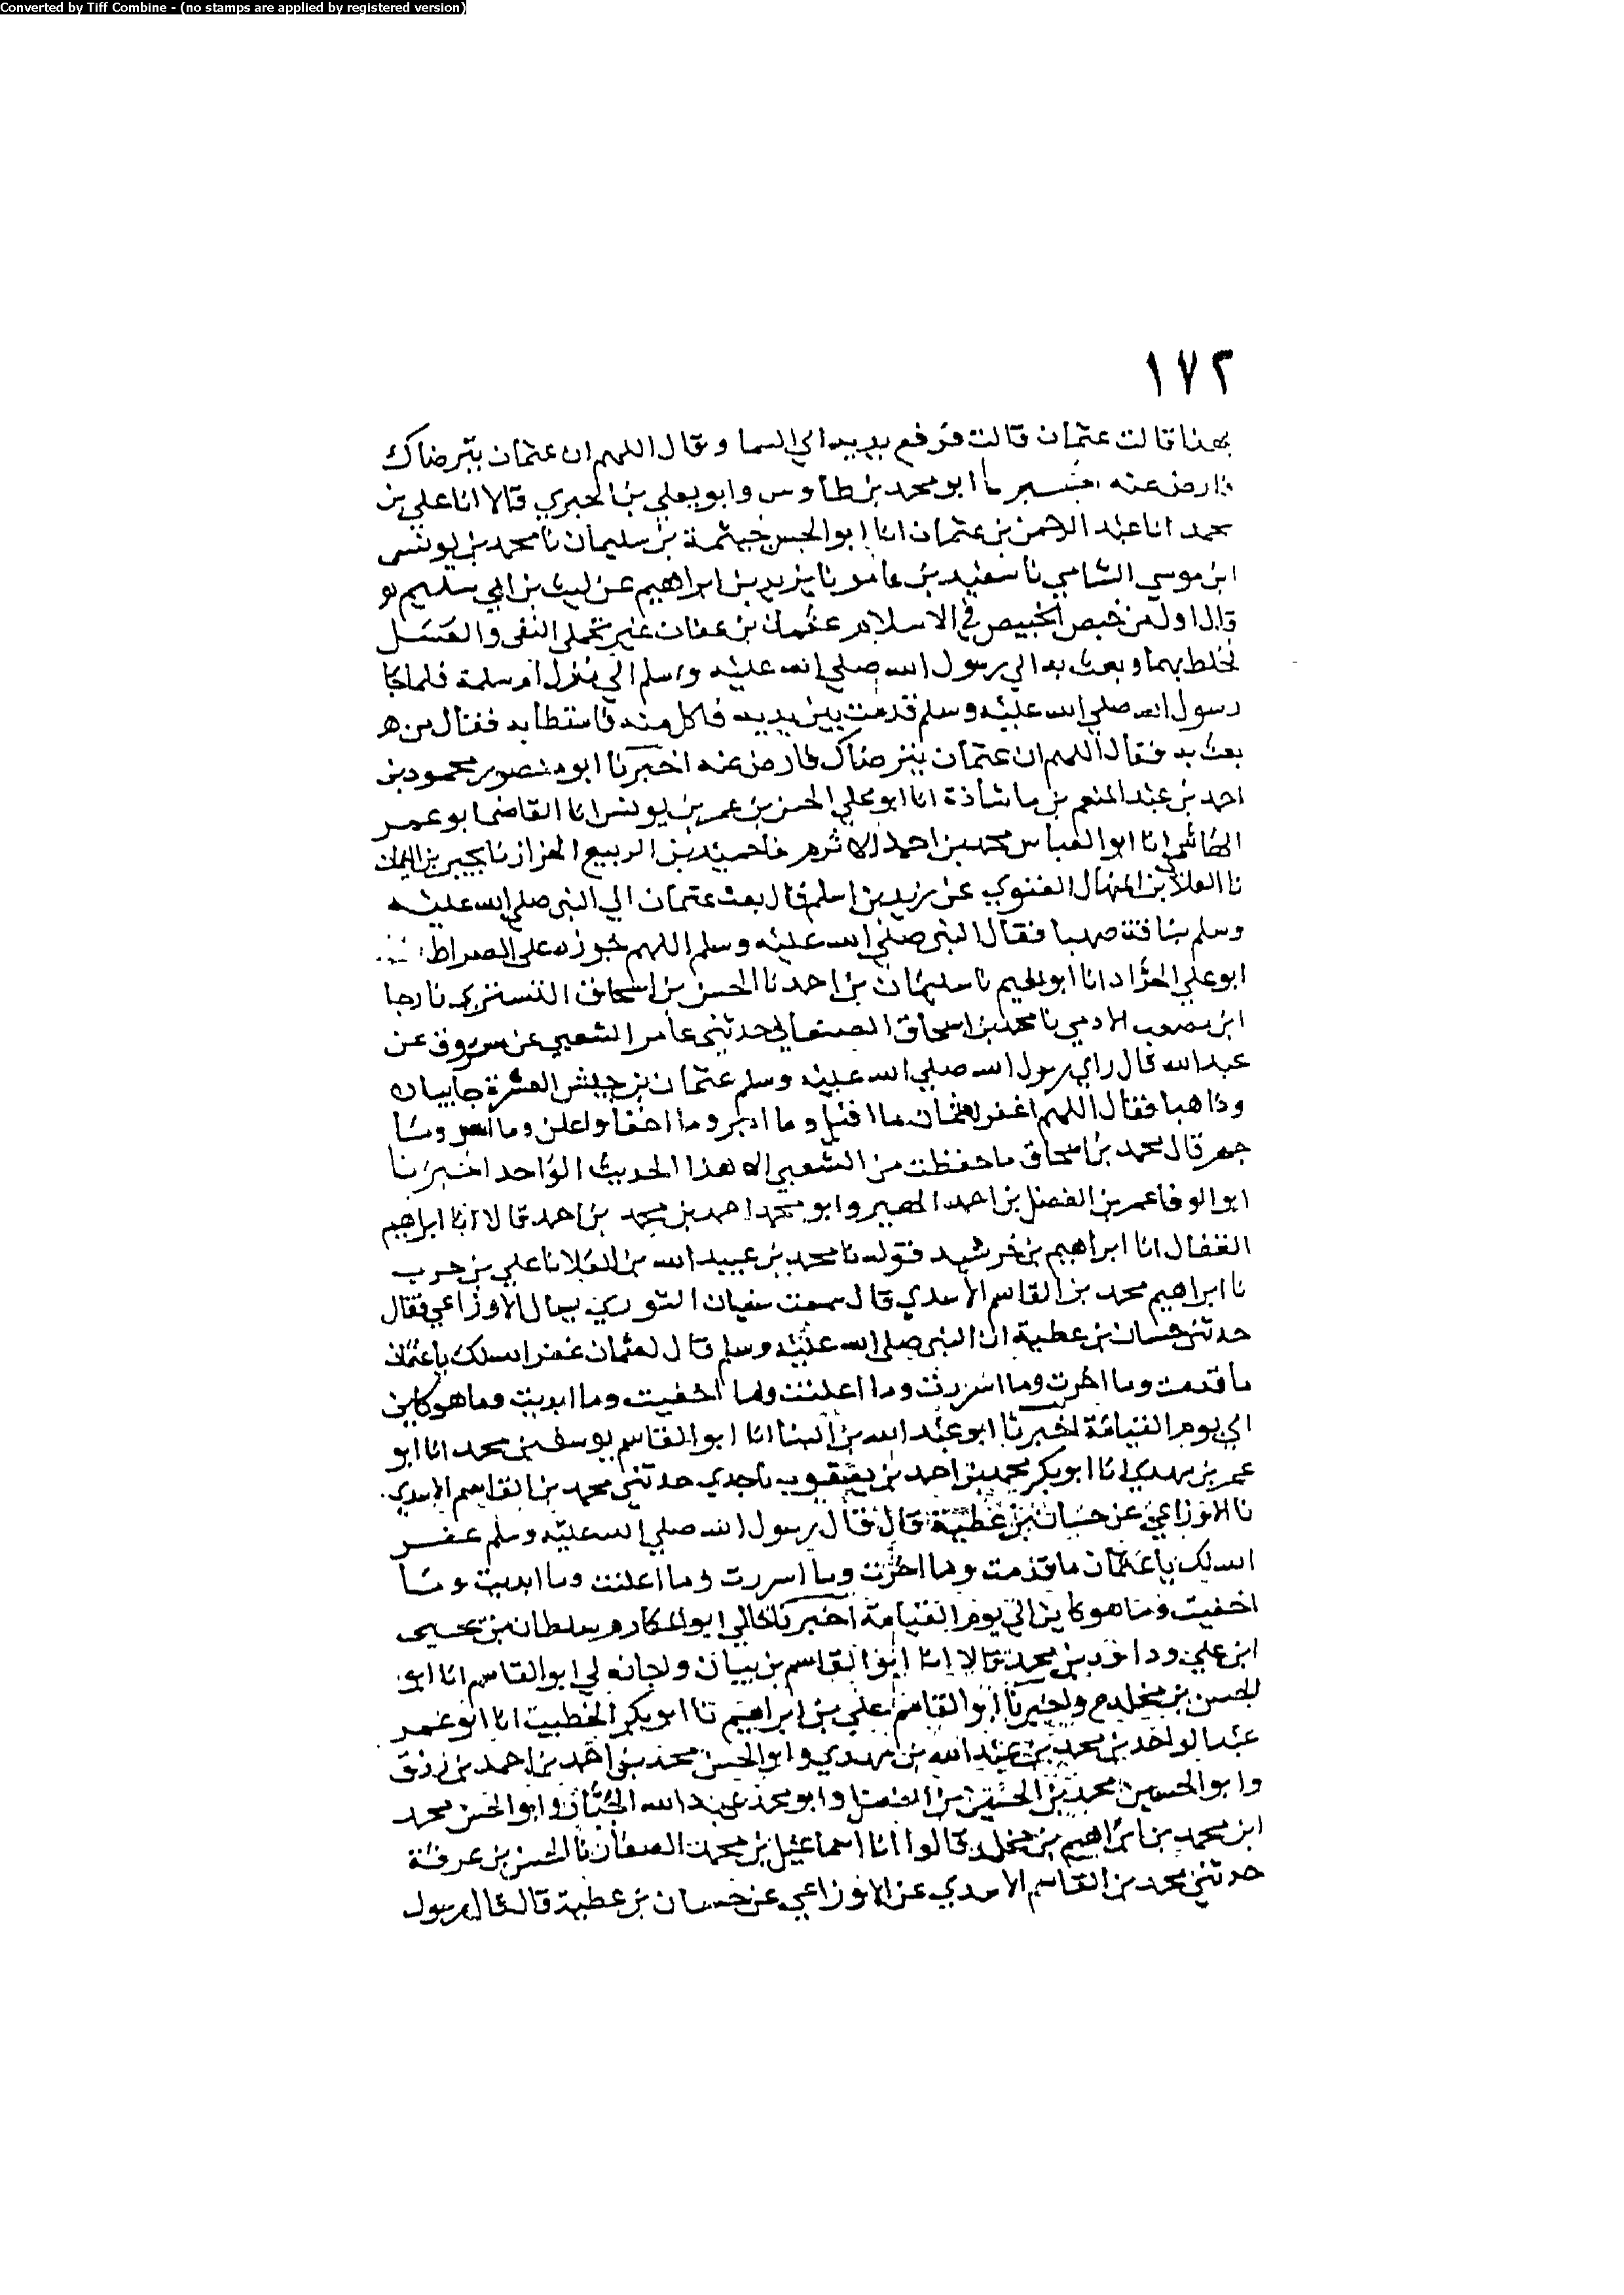 Converted by Tiff Combine - (no stamps are applied by registered version)
١٧٢
بهذا قالت عثمان قالت فرفع يديه الي السما وقال اللهم ان عثمان يترضاك
فارض عنه ابو محمد بن طاوس وابو يعلي بن الحبري قالا انا علي بن
محمد انا عبد الرحمن بن عثمان انا ابو الحسن خيثمة بن سليمان نا محمد بن يونس
ابن موسي الشامي نا سعيد بن عامر نا يزيد بن ابراهيم عن ليث بن ابي سليم
قال اول من خبص الخبيص في الاسلام عثمان بن عفان النقي والعسل
فخلط بهما وبعث به الي رسول الله صلي الله عليه وسلم الي منزل ام سلمة فلما جا
رسول الله صلي الله عليه وسلم قدمت بين يديه فاكل منه فاستطابه فقال من
بعث به فقال اللهم ان عثمان يترضاك فارض عنه اخبرنا ابو منصور محمود بن
احمد بن عبد المنعم بن ماشاذة انا ابو علي الحسن بن عمر بن يونس انا القاضي ابو عمر
الهاشمي انا ابو العباس محمد بن احمد الاثرم نا حميد بن الربيع الخزاز نا يحيي بن اليمان
نا العلا بن المنهال الغنوي عن يزيد بن اسلم قال بعث عثمان الي النبي صلي الله عليه
وسلم بناقة صهبا فقال النبي صلي الله عليه وسلم اللهم جوزه علي الصراط
ابو علي الحداد انا ابو نعيم نا سليمان بن احمد نا الحسن بن اسحاق التستري نا رجا
ابن الادمي نا محمد بن اسحاق الصنعاني حدثني عامر الشعبي عن مسروق عن
عبد الله قال راي رسول الله صلي الله عليه وسلم عثمان بن جيش العسرة جاييا
وذاهبا فقال اللهم اغفر لعثمان ما اقبل وما ادبر وما اخفا واعلن وما اسر وما
جهر قال محمد بن اسحاق ما حفظت من الشعبي الا هذا الحديث الواحد اخبرنا
ابو الوفا عمر بن الفضل بن احمد المميز وابو محمد احمد بن محمد بن احمد قالا انا ابراهيم
القفال انا ابراهيم بن خرشيد قوله نا محمد بن عبيد الله بن العلا نا علي بن حرب
نا ابراهيم محمد بن القاسم الاسدي قال سمعت سفيان الثوري يسال الاوزاعي فقال
حدثني حسان بن عطية ان النبي صلي الله عليه وسلم قال لعثمان غفر الله لك يا عثمان
ما قدمت وما اخرت وما اسررت وما اعلنت وما اخفيت وما ابديت وما هو كاين
الي يوم القيامة اخبرنا ابو عبد الله بن البنا انا ابو القاسم يوسف بن محمد انا ابو
عمر بن مهدي انا ابو بكر محمد بن احمد بن يعقوب نا جدي حدثني محمد بن القاسم الاسدي
نا الاوزاعي عن حسان بن عطية قال قال رسول الله صلي الله عليه وسلم غفر
الله لك يا عثمان ما قدمت وما اخرت وما اسررت وما اعلنت وما ابديت وما
اخفيت وما هو كاين الي يوم القيامة اخبرنا خالي ابو المكارم سلطان بن يحيي
ابن علي وداود بن محمد قالا انا ابو القاسم بن بيان واجازه لي ابو القاسم انا ابو
الحسن بن مخلد ح واخبرنا ابو القاسم علي بن ابراهيم نا ابو بكر الخطيب انا ابو عمر
عبد الواحد بن محمد بن عبد الله بن مهدي وابو الحسن محمد بن احمد بن احمد بن رزق
وابو الحسين محمد بن الحسين بن الفضل وابو محمد عبد الله وابو الحسن محمد
ابن محمد بن ابراهيم بن مخلد قالوا انا اسماعيل بن محمد الصفار نا الحسن بن عرفة
حدثني محمد بن القاسم الاسدي عن الاوزاعي عن حسان بن عطية قال قال رسول